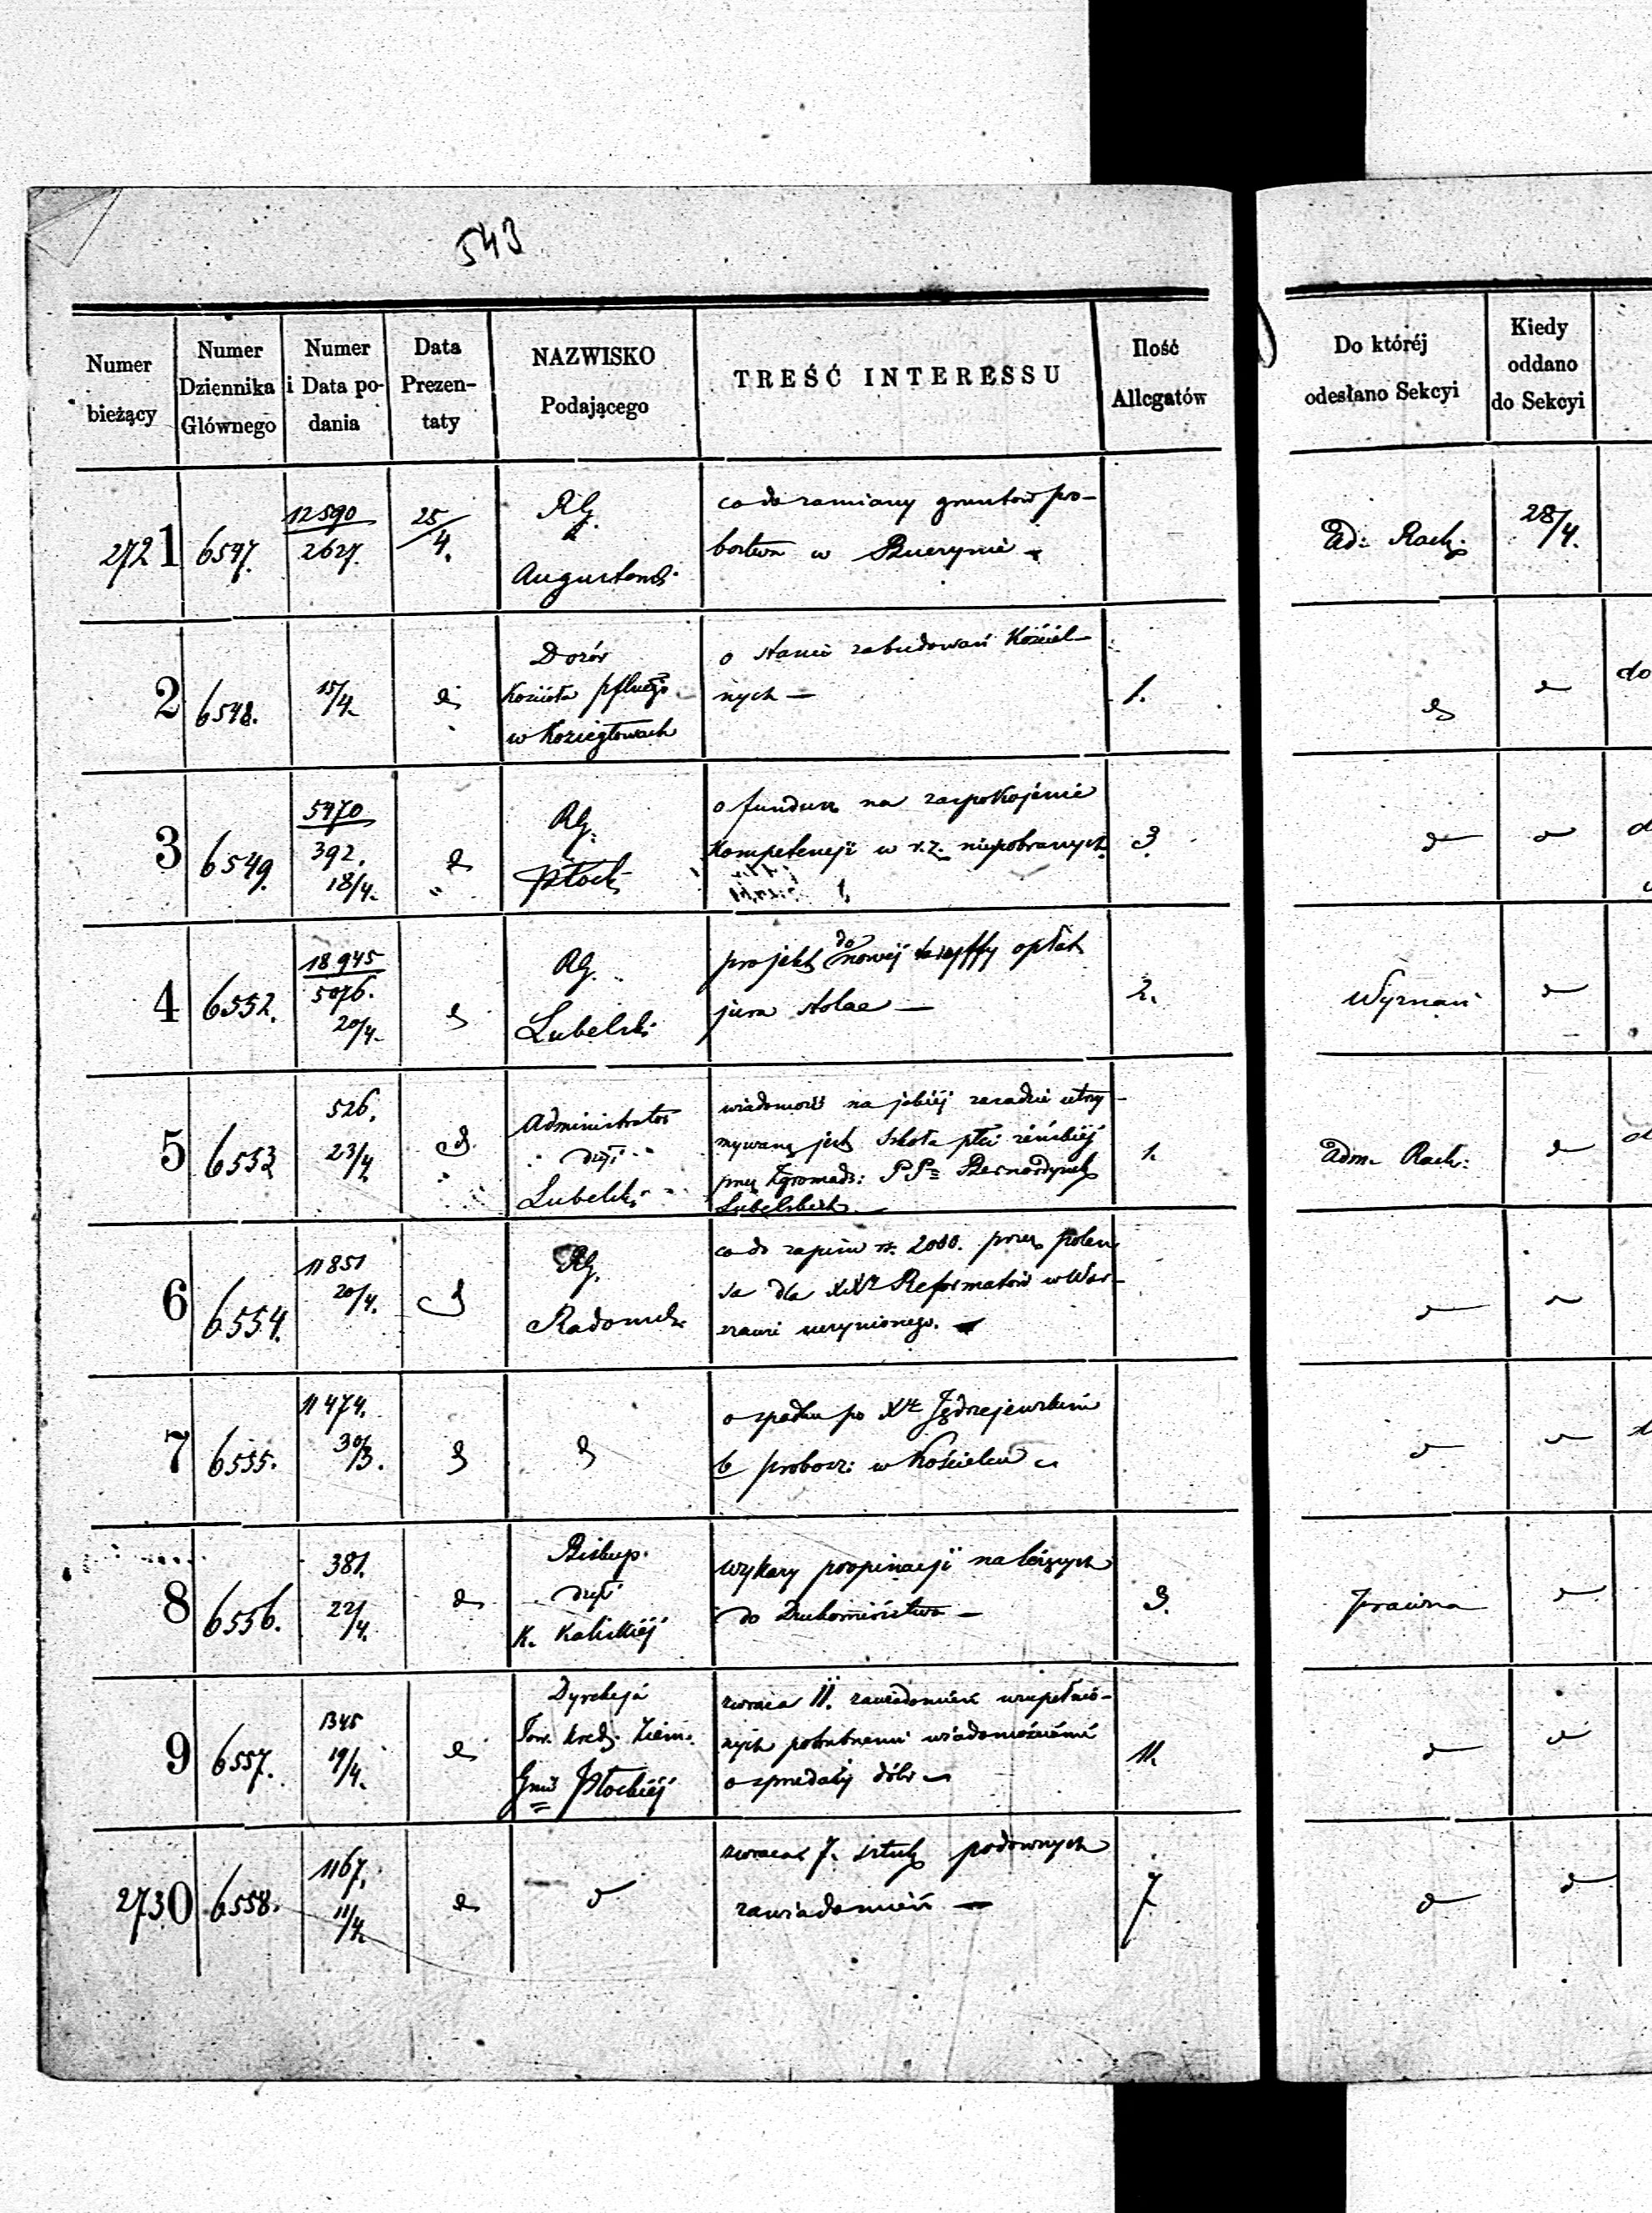 543
Numer bieżący
Numer Dziennika Głównego
Numer i Data podania
Data Prezentaty
NAZWISKO Podającego
TREŚĆ INTERESSU
Ilość Allegatów
Do któréj odesłano Sekcyi
Kiedy oddano do Sekcyi
2721 6547. 12590 / 2627. 25/4. RG. Augustows. co do zamiany gruntów pro- Ad: Rach: 28/4.
bostwa w
2 6548. 15/4. Dozór o stanie zabudowań Kościel- 1. do
Kościoła pflnego nych —
w Koziegłowach
3 6549. 5970 / 392. 18/4. RG. Płock. o fundusz na zaspokojenie 3.
Kompetencji w r. z. niepobranych
4 6552. 18945 / 5076. 20/4. RG. Lubelski projekt do nowéj taryffy opłat 2. Wyznań
jura stolae —
5 6553 526. 23/4 Administrator dyi Lubelski wiadomość na jakiéj zasadzie utrzy- 1. Adm. Rach:
mywaną jest szkoła płci żeńskiéj
przy Zgromadz: PP= Bernardynek
Lubelskich
6 6554. 11851 20/4. RG. Radoms. co do zapisu 2000. przez
sa dla XX Reformatów w War-
szawie uczynionego.
7 6555. 11474. 30/3. o spadku po Xdz Jędrzejewskim
b proboszcz: w Kościelcu
8 6556. 381. 22/4. Biskup dyi K. Kaliskiéj wykazy propinacji należących 3. Prawna
do Duchowieństwa —
9 6557. 1345 19/4. Dyrekcja zwraca 11. zawiadomień uzupełnio- 11.
Tow. Kred. Ziem. nych potrzebnemi wiadomościami
Gnii Płockiéj o sprzedaży dóbr
2730 6558. 1167. 11/4. zwraca 7. sztuk podobnych 7
zawiadomień —